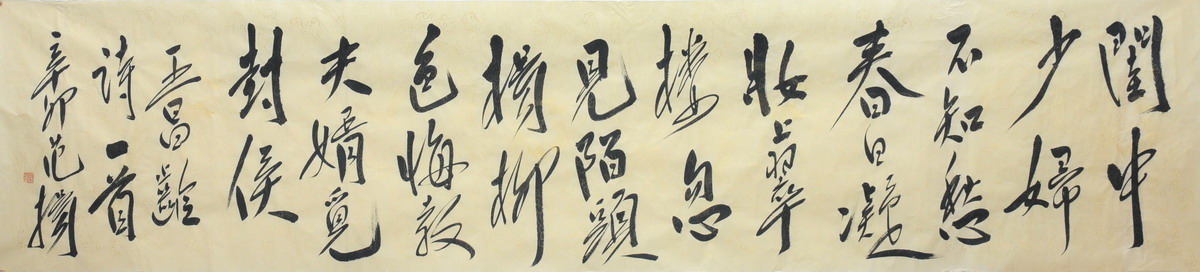 閨中
少婦
不知愁
春日凝
妝上翠
樓忽
見陌頭
楊柳
色悔教
夫婿覓
封侯
王昌齡
詩一首
辛卯范揚